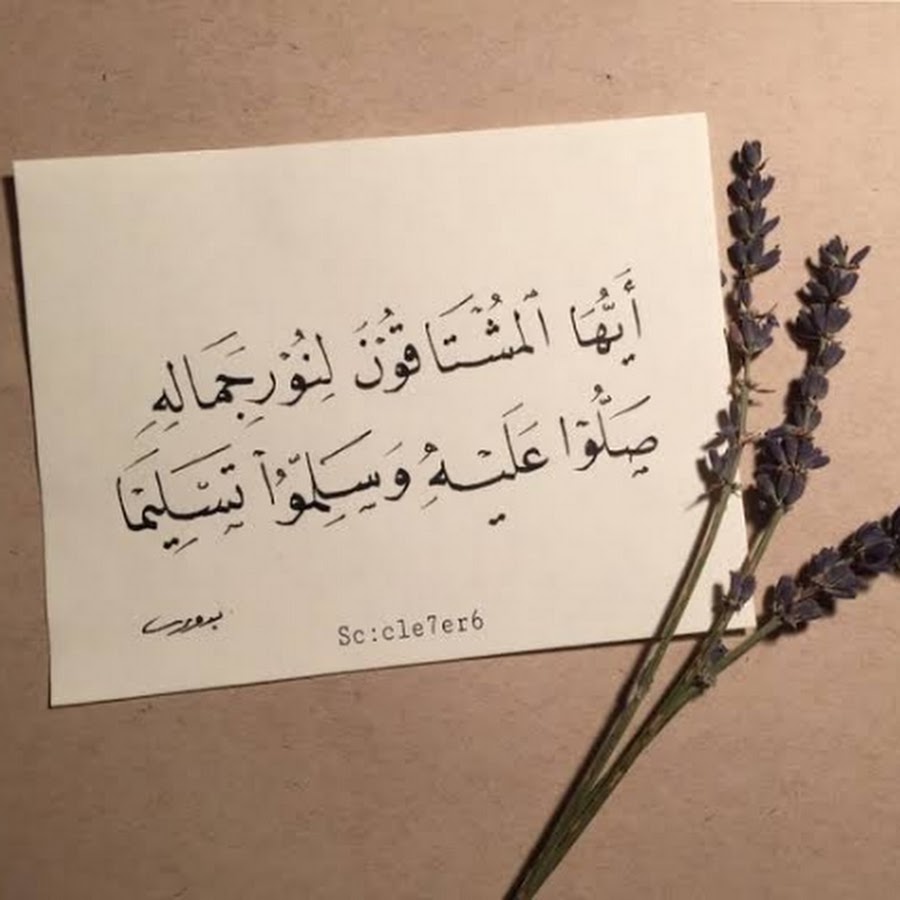 أَيُّهَا ٱلْمُشْتَاقُوْنَ لِنُوْرِ جَمَالِهِ
صَلُّوْا عَلَيْهِ وَسَلِّمُوْا تَسْلِيْمَا
Sc:cle7er6